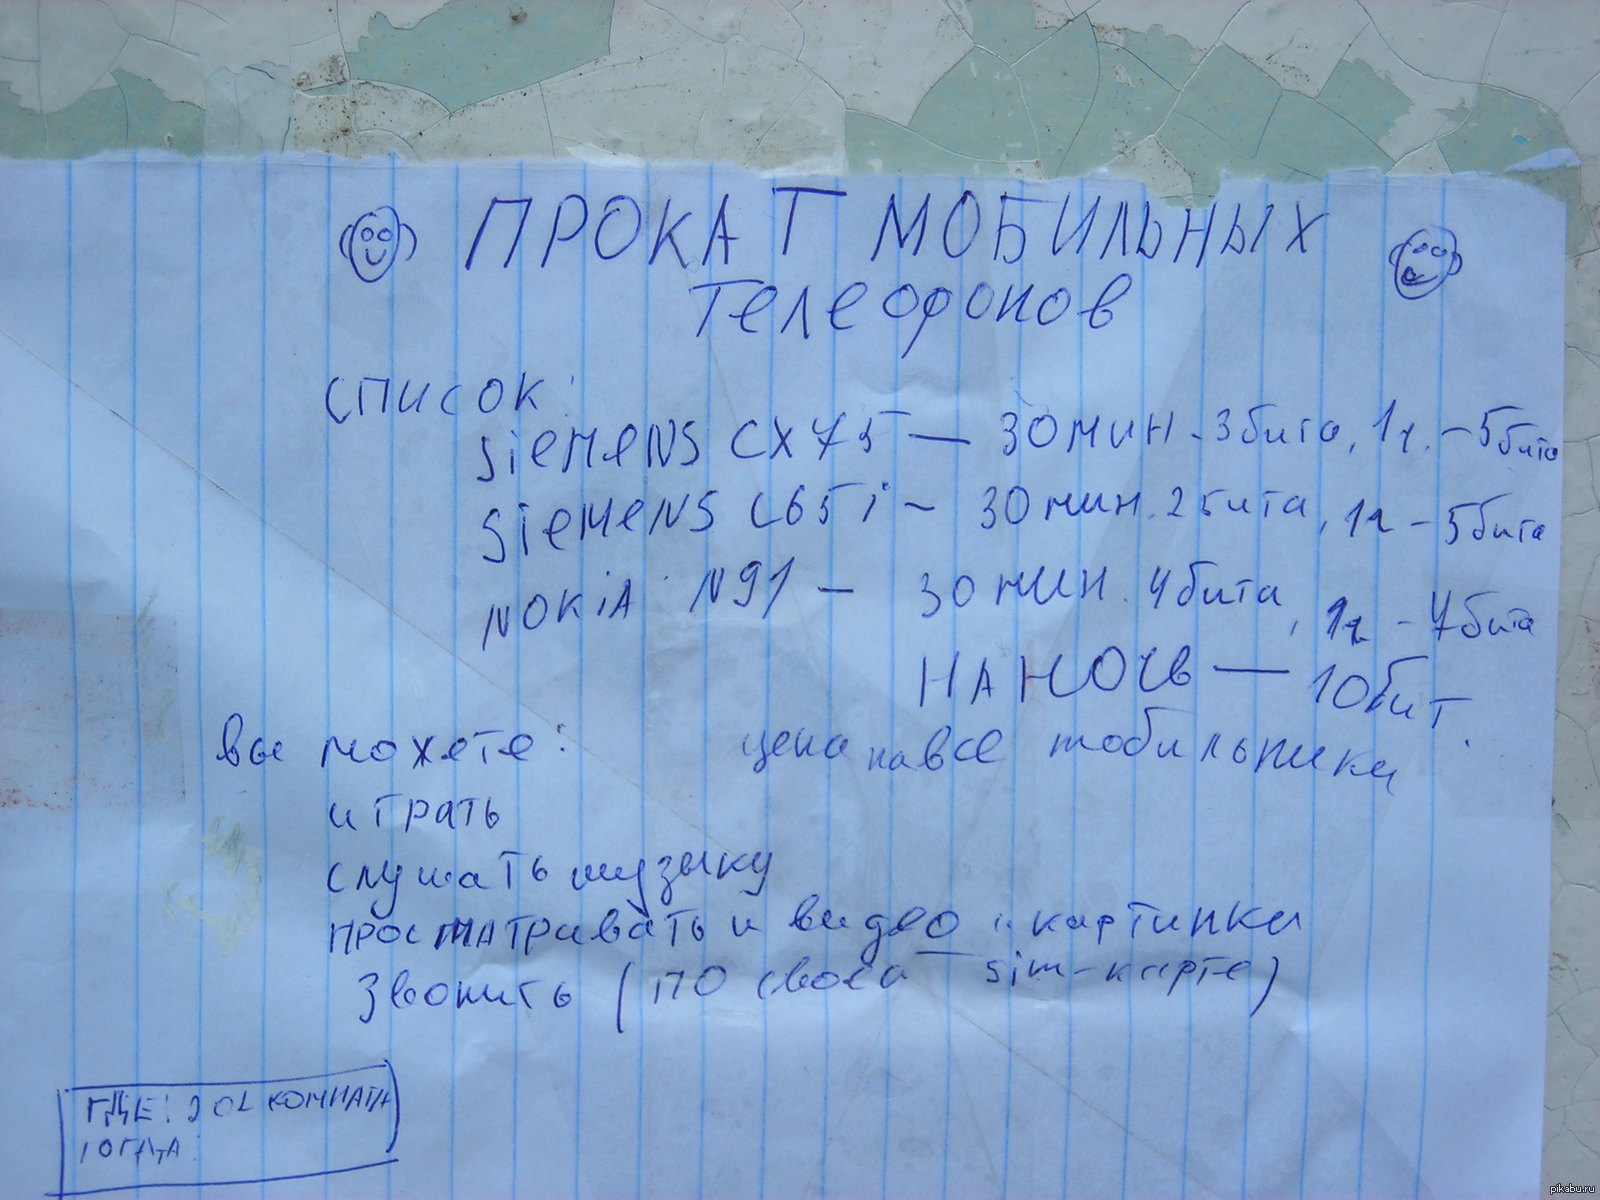 ПРОКАТ МОБИЛЬНЫХ
Телефонов
список:
SieMeNS CX75 — 30 мин - 3 бита, 1ч. - 5 бита
SieMeNS C65i - 30 мин. 2 бита, 1ч - 5 бита
NOKiA N91 - 30 мин. 4 бита, 1ч - 7 бита
НА НОЧЬ — 10 бит.
Вы можете: цена на все мобильники
играть
слушать музыку
просматривать и видео и картинки
Звонить (по своей sim-карте)
ГДЕ: 201 КОМНАТА
pikabu.ru